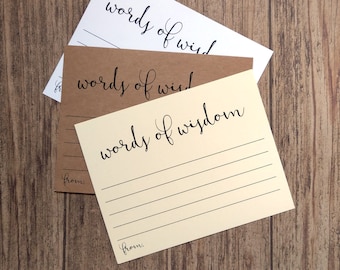 words of wisdom
words of wisdom
from:
words of wisdom
from: